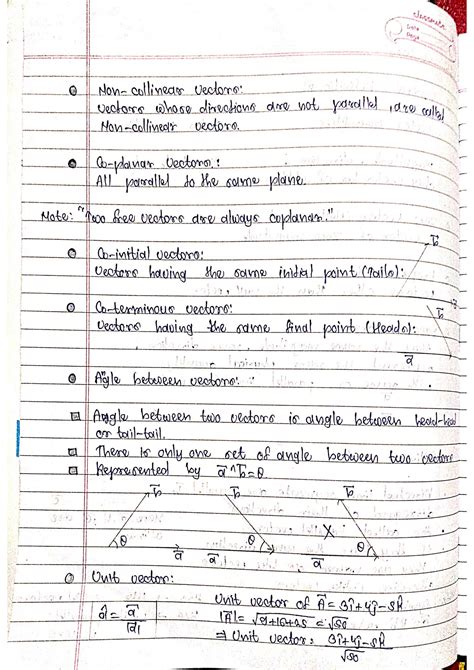 classmate
Date
Page
Non-collinear vectors:
Vectors whose directions are not parallel, are called
Non-collinear vectors.
Co-planar Vectors.:
All parallel to the same plane.
Note: "Two free vectors are always coplanar."
b
Co-initial vectors:
Vectors having the same initial point (Tails):
Co-terminous vectors:
b
Vectors having the same final point (Heads):
a
Angle between vectors:
Angle between two vectors is angle between head-head
or tail-tail.
There is only one set of angle between two vectors
Represented by a⃗ ^ b⃗ = θ
b⃗ b⃗ b⃗
X
θ θ θ
a⃗ a⃗ a⃗
Unit vector:
Unit vector of A⃗ = 3î+4ĵ-5k̂
â = a⃗/|a⃗| |A⃗| = √9+16+25 = √50
⇒ Unit vector: 3î+4ĵ-5k̂/√50